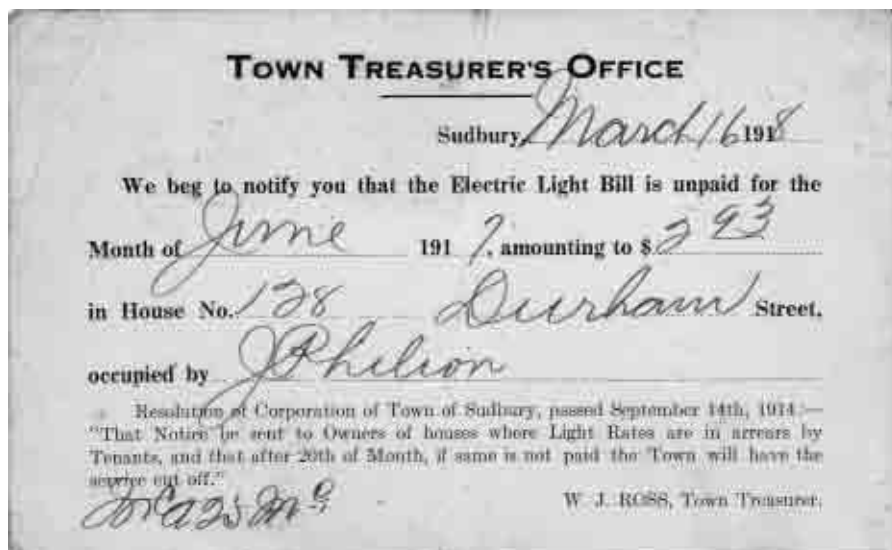 TOWN TREASURER'S OFFICE
Sudbury, March 16 1918
We beg to notify you that the Electric Light Bill is unpaid for the
Month of June 1917, amounting to $2 93
in House No. 128 Durham Street,
occupied by J Phelion
Resolution of Corporation of Town of Sudbury, passed September 14th, 1914:—
"That Notice be sent to Owners of houses where Light Rates are in arrears by
Tenants, and that after 20th of Month, if same is not paid the Town will have the
service cut off."
W. J. ROSS, Town Treasurer.